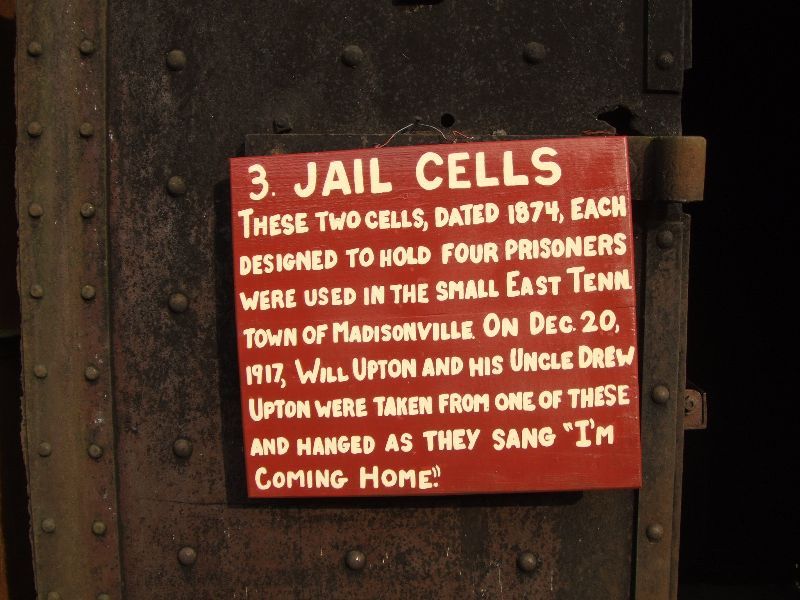 3. JAIL CELLS
THESE TWO CELLS, DATED 1874, EACH
DESIGNED TO HOLD FOUR PRISONERS
WERE USED IN THE SMALL EAST TENN.
TOWN OF MADISONVILLE. ON DEC. 20,
1917, WILL UPTON AND HIS UNCLE DREW
UPTON WERE TAKEN FROM ONE OF THESE
AND HANGED AS THEY SANG "I'M
COMING HOME."